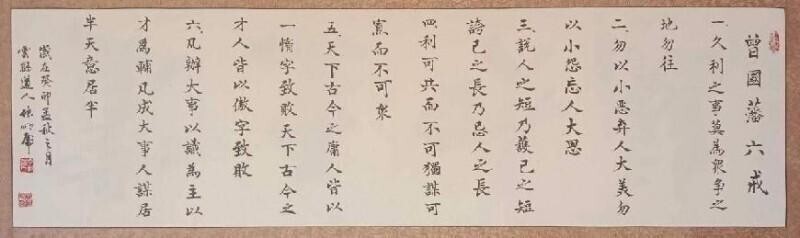 曾國藩六戒
一、久利之事莫為眾爭之
地勿往
二、勿以小惡棄人大美勿
以小怨忘人大恩
三、說人之短乃護己之短
誇己之長乃忌人之長
四、利可共而不可獨謀可
寡而不可眾
五、天下古今之庸人皆以
一惰字致敗天下古今之
才人皆以傲字致敗
六、凡辦大事以識為主以
才為輔凡成大事人謀居
半天意居半
歲在癸卯孟秋之月
道人